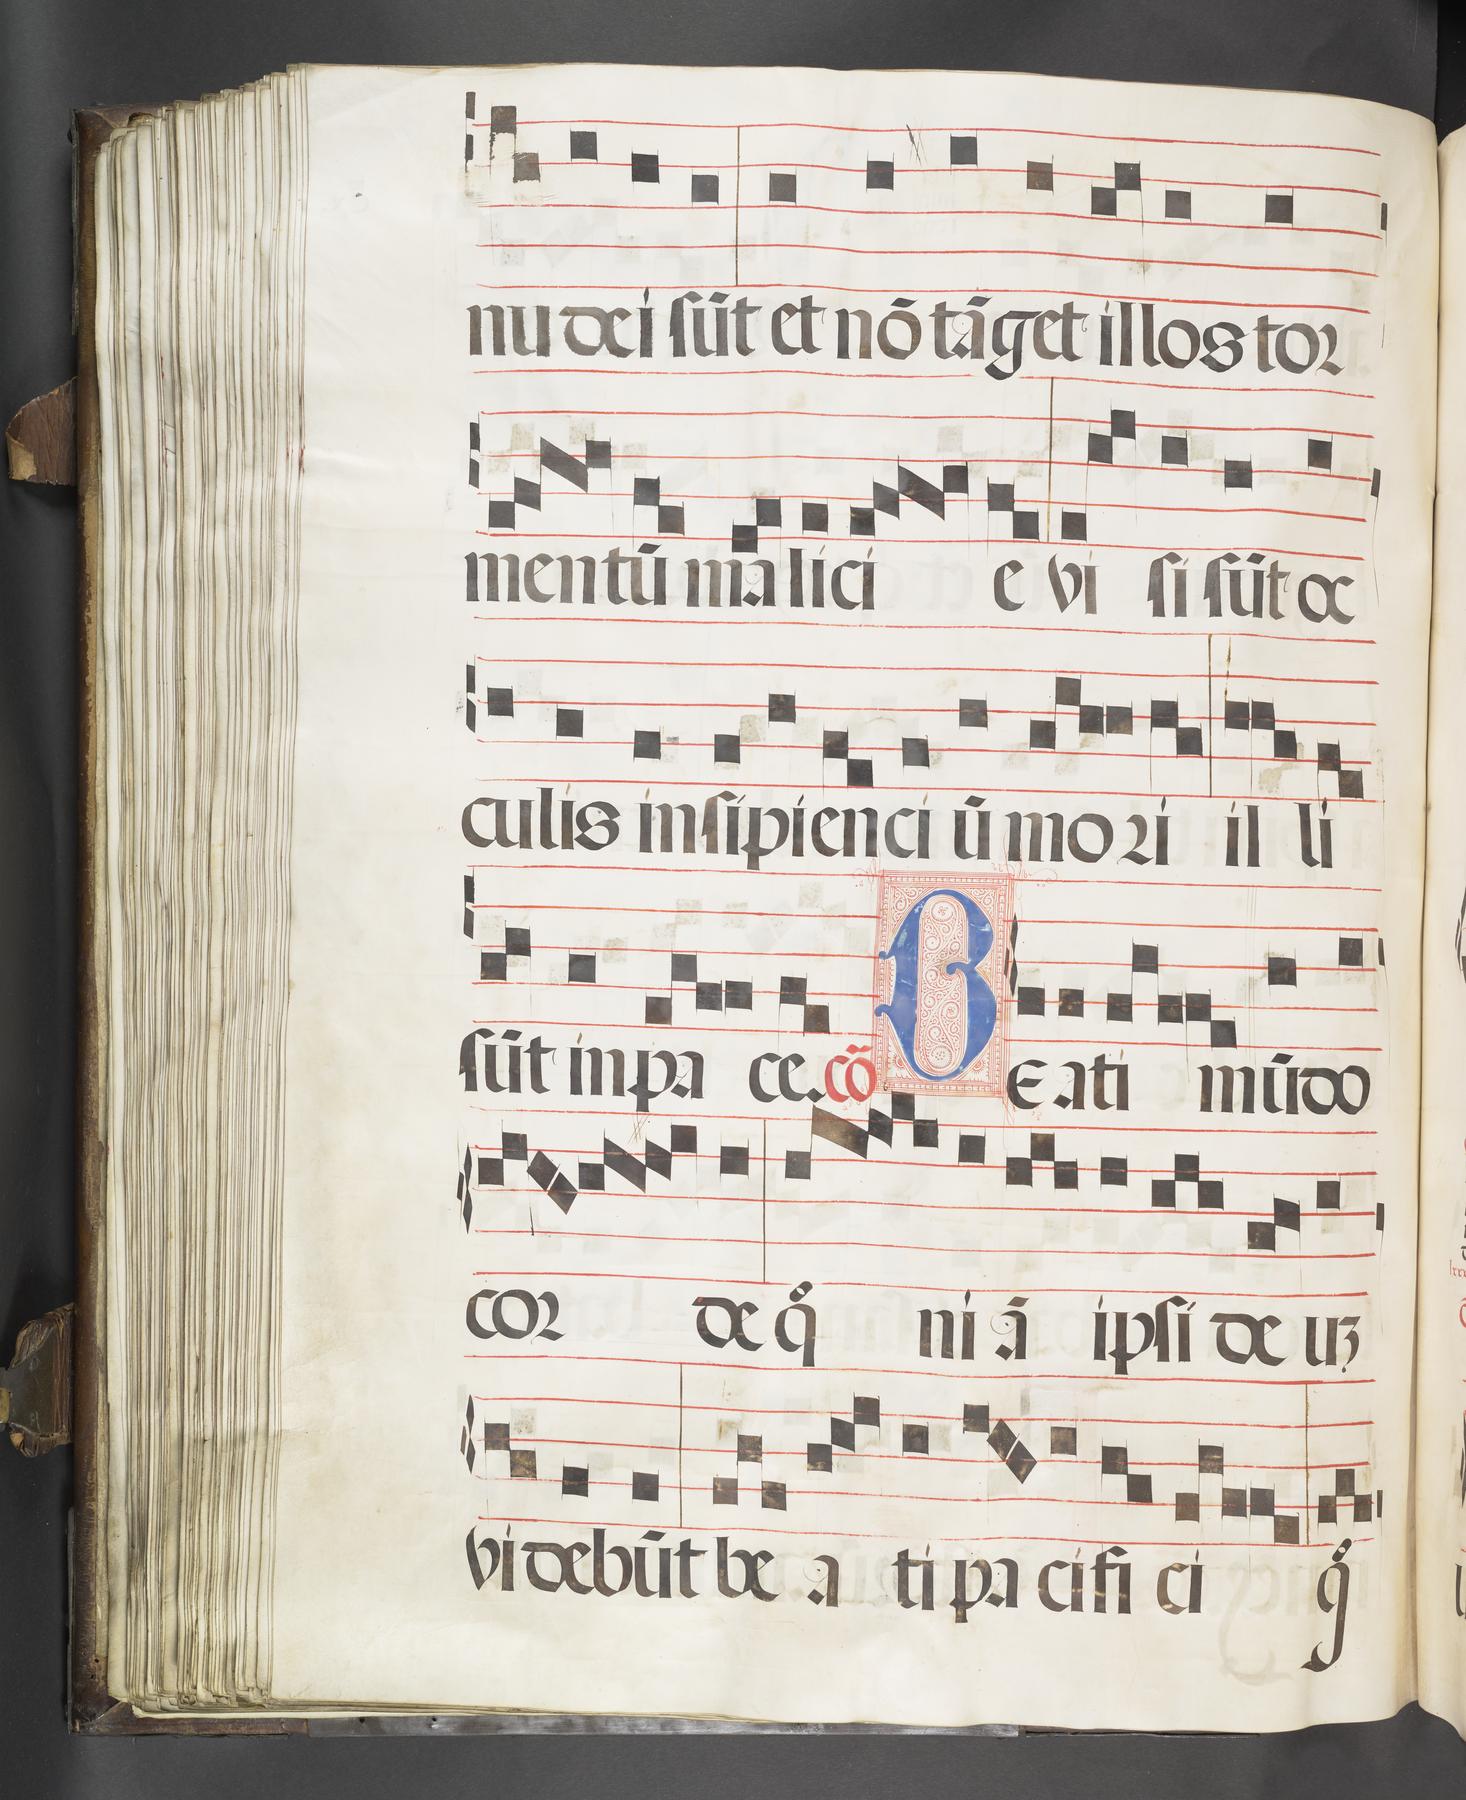 nu dei sūt et nō tāget illos tor
mentū malici e vi si sūt oc
culis insipienci ū mo ri il li
sūt in pa ce. cō B E ati mūdo
cor de qͦ ni ā ipsi de uꝫ
videbūt be a ti pa cifi ci qͦ